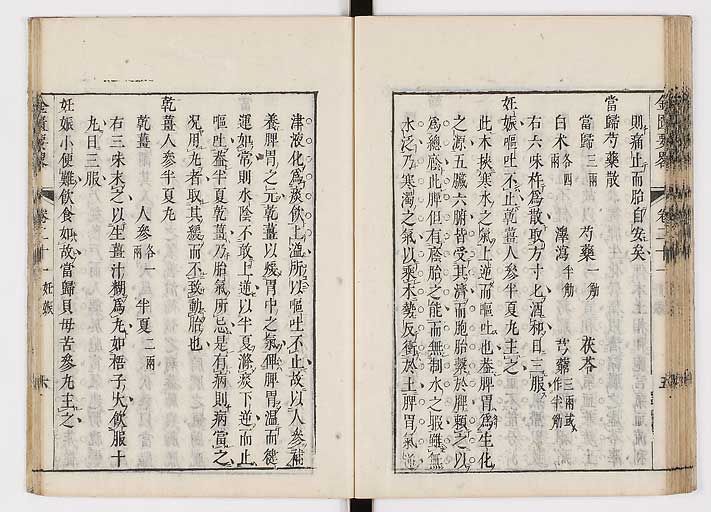 則痛止而胎自安矣
當歸芍藥散
當歸三兩　芍藥一觔　茯苓
白朮各四兩　澤瀉半觔　芎藭三兩或作半觔
右六味杵爲散取方寸匕酒和日三服
妊娠嘔吐不止乾薑人參半夏丸主之
此木挾寒水之氣上逆而嘔吐也蓋脾胃爲生化
之源五臟六腑皆受其濟而胞胎繫於脾賴之以
爲總廕此脾但有廕胎之能而無制水之
水泛乃寒濁之氣以乘木勢反衝於土脾胃氣逆
金匱要畧　卷二十一　五
津液化爲痰飲上溢所以嘔吐不止故以人參補
養脾胃之元乾薑以煖胃中之氣俾脾胃溫而健
運如常則水陰不敢上逆以半夏滌痰下逆而止
嘔吐蓋半夏乾薑乃胎氣所忌是有病則病當之
況用丸者取其緩而不致動胎也
乾薑人參半夏丸
乾薑　人參各一兩　半夏二兩
右三味末之以生薑汁糊爲丸如梧子大飲服十
丸日三服
妊娠小便難飲食如故當歸貝母苦參丸主之
金匱要畧　卷二十一　妊娠　六